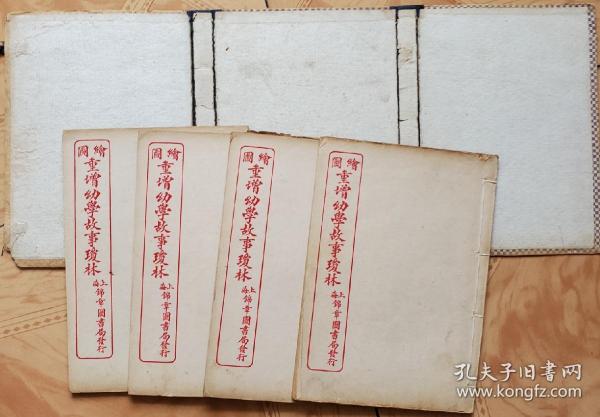 繪圖
重增幼學故事瓊林
上海錦章圖書局發行
繪圖
重增幼學故事瓊林
上海錦章圖書局發行
繪圖
重增幼學故事瓊林
上海錦章圖書局發行
繪圖
重增幼學故事瓊林
上海錦章圖書局發行
孔夫子旧书网
www.kongfz.com